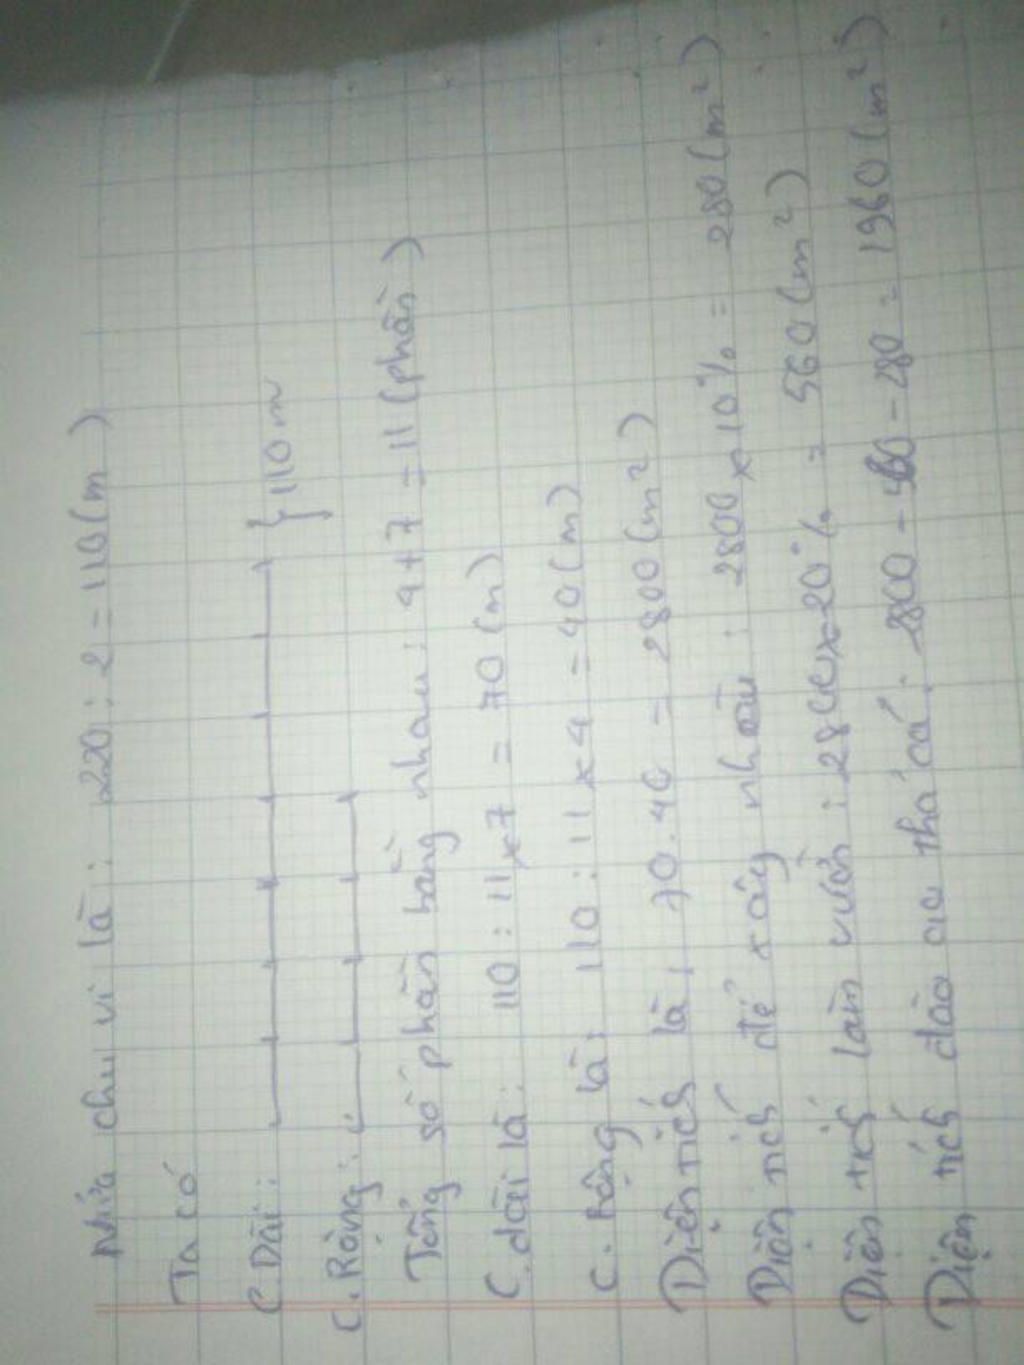 Nửa chu vi là: 220 : 2 = 110 (m)
Ta có
C. Dài: } 110 m
C. Rộng:
Tổng số phần bằng nhau: 4 + 7 = 11 (phần)
C. dài là: 110 : 11 x 7 = 70 (m)
C. Rộng là: 110 : 11 x 4 = 40 (m)
Diện tích là: 70 . 40 = 2800 (m²)
Diện tích để xây nhà: 2800 x 10% = 280 (m²)
Diện tích làm vườn: 2800 x 20% = 560 (m²)
Diện tích đào ao thả cá: 2800 - 560 - 280 = 1960 (m²)